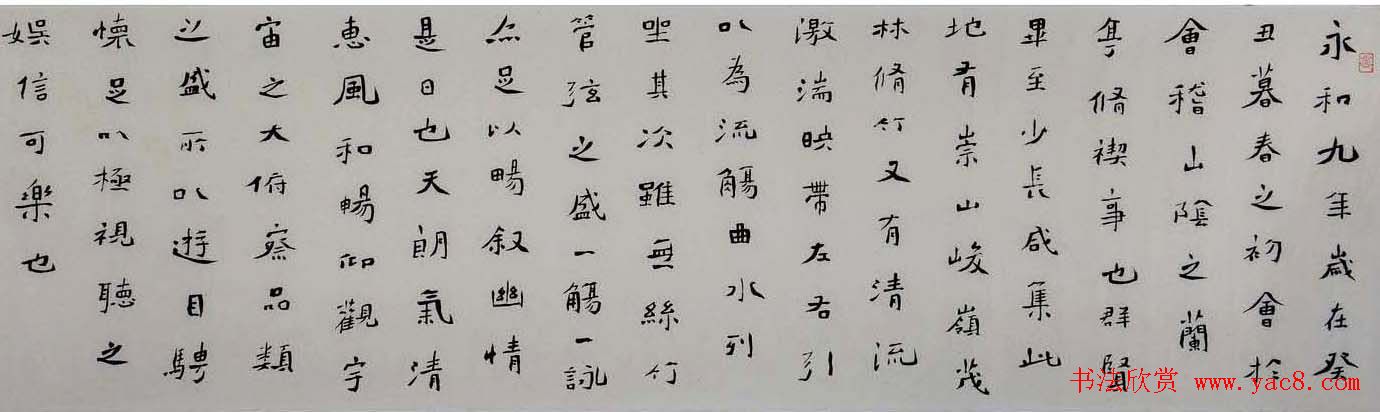 永和九年歲在癸
丑暮春之初會於
會稽山陰之蘭
亭脩禊事也群賢
畢至少長咸集此
地有崇山峻嶺茂
林脩竹又有清流
激湍映帶左右引
以為流觴曲水列
坐其次雖無絲竹
管弦之盛一觴一詠
亦足以暢叙幽情
是日也天朗氣清
惠風和暢仰觀宇
宙之大俯察品類
之盛所以遊目騁
懷足以極視聽之
娛信可樂也
书法欣赏 www.yac8.com